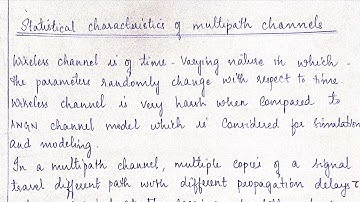 Statistical characteristics of multipath channels
Wireless channel is of time-varying nature in which
the parameters randomly change with respect to time.
Wireless channel is very harsh when compared to
AWGN channel model which is considered for simulation
and modeling.
In a multipath channel, multiple copies of a signal
travel different path with different propagation delays τ